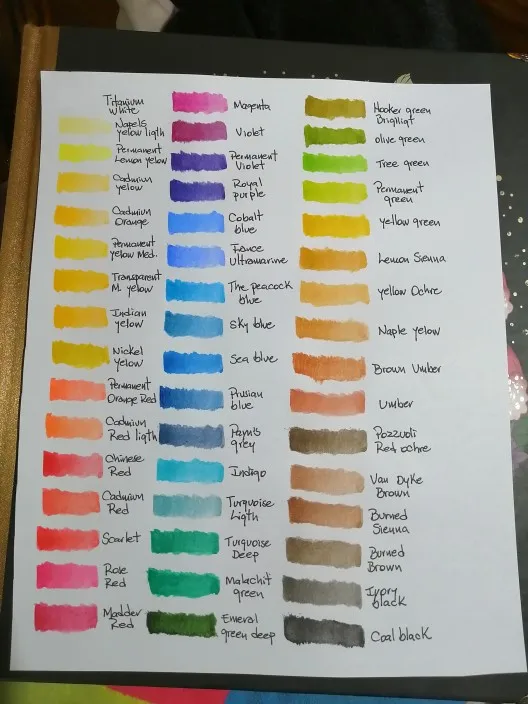 Titanium
White
Napels
yellow ligth
Permanent
Lemon yelow
Cadmium
yelow
Cadmium
Orange
Permanent
yelow Med.
Transparent
M. yelow
Indian
yelow
Nickel
Yelow
Permanent
Orange Red
Cadmium
Red ligth
Chinese
Red
Cadmium
Red
Scarlet
Rose
Red
Madder
Red
Magenta
Violet
Permanent
Violet
Royal
purple
Cobalt
blue
France
Ultramarine
The peacock
blue
Sky blue
Sea blue
Prusian
blue
Parn's
grey
Indigo
Turquoise
Ligth
Turquoise
Deep
Malachit
green
Emeral
green deep
Hooker green
Brilligt
olive green
Tree green
Permanent
green
yellow green
Lemon Sienna
yellow Ochre
Naple yelow
Brown Umber
Umber
Pozzuoli
Red ochre
Van Dyke
Brown
Burned
Sienna
Burned
Brown
Ivory
black
Coal black